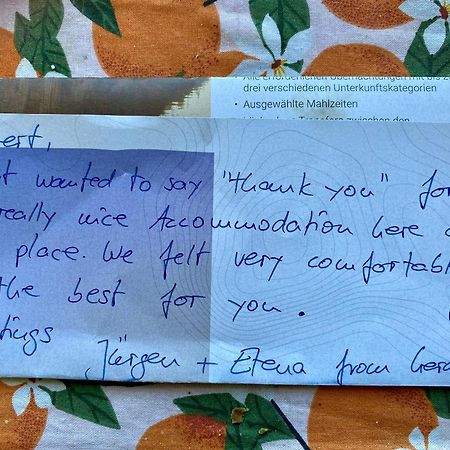 drei verschiedenen Unterkunftskategorien
• Ausgewählte Mahlzeiten
ert,
t wanted to say "thank you" for
really nice Accommodation here
place. We felt very comfortabl
the best for you.
tings
Jürgen + Elena from